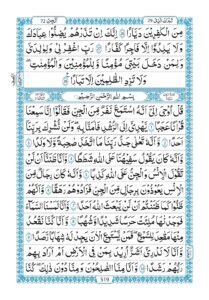 الجن ٧٢ تبارك الذي ٢٩
مِنَ الْكٰفِرِيْنَ دَيَّارًا ۝ اِنَّكَ اِنْ تَذَرْهُمْ يُضِلُّوْا عِبَادَكَ
وَلَا يَلِدُوْٓا اِلَّا فَاجِرًا كَفَّارًا ۝ رَبِّ اغْفِرْ لِيْ وَلِوَالِدَيَّ
وَلِمَنْ دَخَلَ بَيْتِيَ مُؤْمِنًا وَّلِلْمُؤْمِنِيْنَ وَالْمُؤْمِنٰتِ
وَلَا تَزِدِ الظّٰلِمِيْنَ اِلَّا تَبَارًا ۝
بِسْمِ اللهِ الرَّحْمٰنِ الرَّحِيْمِ
قُلْ اُوْحِيَ اِلَيَّ اَنَّهُ اسْتَمَعَ نَفَرٌ مِّنَ الْجِنِّ فَقَالُوْٓا اِنَّا سَمِعْنَا
قُرْاٰنًا عَجَبًا ۝ يَّهْدِيْٓ اِلَى الرُّشْدِ فَاٰمَنَّا بِهٖ وَلَنْ نُّشْرِكَ بِرَبِّنَآ
اَحَدًا ۝ وَّاَنَّهٗ تَعٰلٰى جَدُّ رَبِّنَا مَا اتَّخَذَ صَاحِبَةً وَّلَا وَلَدًا ۝
وَّاَنَّهٗ كَانَ يَقُوْلُ سَفِيْهُنَا عَلَى اللهِ شَطَطًا ۝ وَّاَنَّا ظَنَنَّآ اَنْ
لَّنْ تَقُوْلَ الْاِنْسُ وَالْجِنُّ عَلَى اللهِ كَذِبًا ۝ وَّاَنَّهٗ كَانَ رِجَالٌ مِّنَ
الْاِنْسِ يَعُوْذُوْنَ بِرِجَالٍ مِّنَ الْجِنِّ فَزَادُوْهُمْ رَهَقًا ۝ وَّاَنَّهُمْ
ظَنُّوْا كَمَا ظَنَنْتُمْ اَنْ لَّنْ يَّبْعَثَ اللهُ اَحَدًا ۝ وَّاَنَّا لَمَسْنَا السَّمَآءَ
فَوَجَدْنٰهَا مُلِئَتْ حَرَسًا شَدِيْدًا وَّشُهُبًا ۝ وَّاَنَّا كُنَّا نَقْعُدُ
مِنْهَا مَقَاعِدَ لِلسَّمْعِ فَمَنْ يَّسْتَمِعِ الْاٰنَ يَجِدْ لَهٗ شِهَابًا رَّصَدًا ۝
وَّاَنَّا لَا نَدْرِيْٓ اَشَرٌّ اُرِيْدَ بِمَنْ فِي الْاَرْضِ اَمْ اَرَادَ بِهِمْ
رَبُّهُمْ رَشَدًا ۝ وَّاَنَّا مِنَّا الصّٰلِحُوْنَ وَمِنَّا دُوْنَ ذٰلِكَ كُنَّا